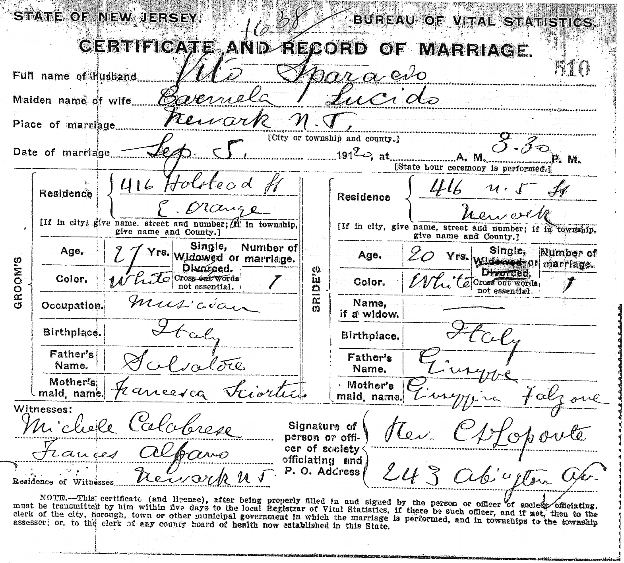 STATE OF NEW JERSEY. 1638 BUREAU OF VITAL STATISTICS.
CERTIFICATE AND RECORD OF MARRIAGE.
510
Full name of Husband Vito Sparacio
Maiden name of wife Carmela Lucido
Place of marriage Newark N.J.
[City or township and county.]
Date of marriage Sep 5. 1920, at A. M. 3.30 P. M.
[State hour ceremony is performed.]
GROOM'S
Residence 416 Holstead St
E. Orange
[If in city, give name, street and number; if in township, give name and County.]
Age. 27 Yrs. Single, Widowed or Divorced. Number of marriage.
Color. White Cross out words not essential. 1
Occupation. Musician
Birthplace. Italy
Father's Name. Salvatore
Mother's maid, name. Francesca
BRIDE'S
Residence 416 N. 5 St
Newark
[If in city, give name, street and number; if in township, give name and County.]
Age. 20 Yrs. Single, Widowed or Divorced. Number of marriage.
Color. White Cross out words not essential. 1
Name, if a widow.
Birthplace. Italy
Father's Name. Giuseppe
Mother's maid, name. Giuseppina Falzone
Witnesses:
Michele Calabrese
Frances Alfano
Residence of Witnesses Newark NJ
Signature of person or officer of society officiating and P. O. Address
Rev.
243 Abington Av
NOTE.—This certificate (and license), after being properly filled in and signed by the person or officer of society officiating,
must be transmitted by him within five days to the local Registrar of Vital Statistics, if there be such officer, and if not, then to the
clerk of the city, borough, town or other municipal government in which the marriage is performed, and in townships to the township
assessor; or, to the clerk of any county board of health now established in this State.